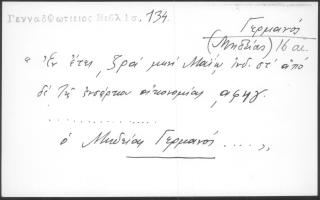 Γενναδ Φωτιειος Βιβλ ι σ. 134.
Γερμανός
(Μηδείας) 16 αι.
"Ἐν ἔτει ͵ζρα΄ μηνὶ Μαΐῳ ἰνδ. στ΄ ἀπὸ
δὲ τῆς ἐνσάρκου οἰκονομίας ͵αφηγ.
. . . . . . . . . . . . .
ὁ Μηδείας Γερμανός . . . . . ,,